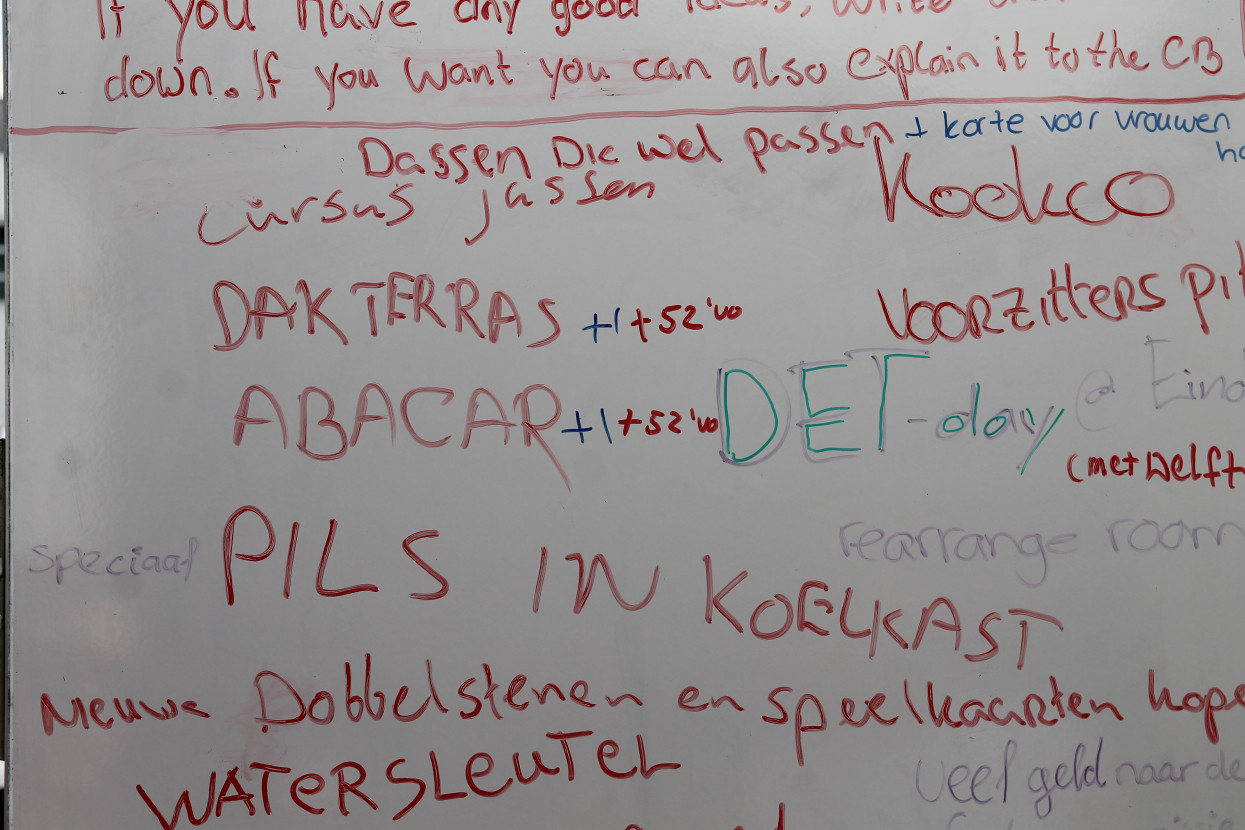 If you have any good ideas, write
down. If you want you can also explain it to the CB
Dassen Die wel passen + korte voor vrouwen
cursus jassen
Kookco
DAKTERRAS +1 +52 'vo
VOORZITTERS
ABACAR +1 +52 'vo
DET-day @
(met Delft
speciaal PILS IN KOELKAST
rearrange room
Nieuwe Dobbelstenen en speelkaarten kope
WATERSLEUTEL
veel geld naar de